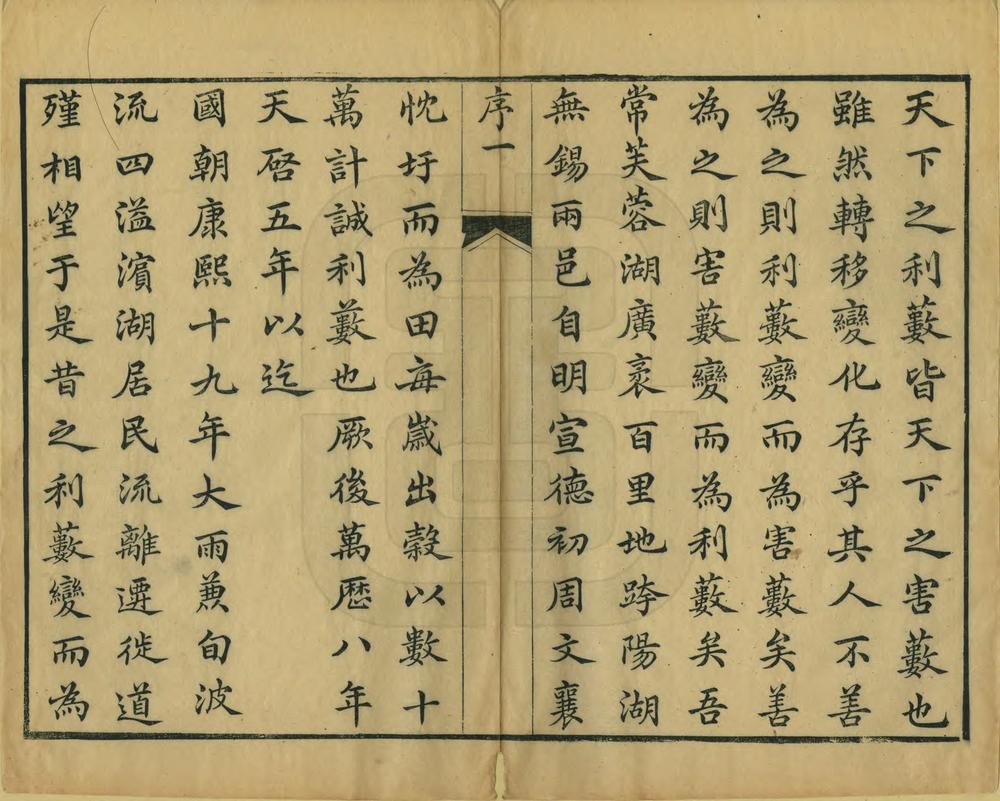 天下之利藪皆天下之害藪也
雖然轉移變化存乎其人不善
為之則利藪變而為害藪矣善
為之則害藪變而為利藪矣吾
常芙蓉湖廣袤百里地跨陽湖
無錫兩邑自明宣德初周文襄
序一
忱圩而為田每歲出穀以數十
萬計誠利藪也厥後萬歷八年
天啓五年以迄
國朝康熙十九年大雨兼旬波
流四溢濱湖居民流離遷徙道
殣相望于是昔之利藪變而為